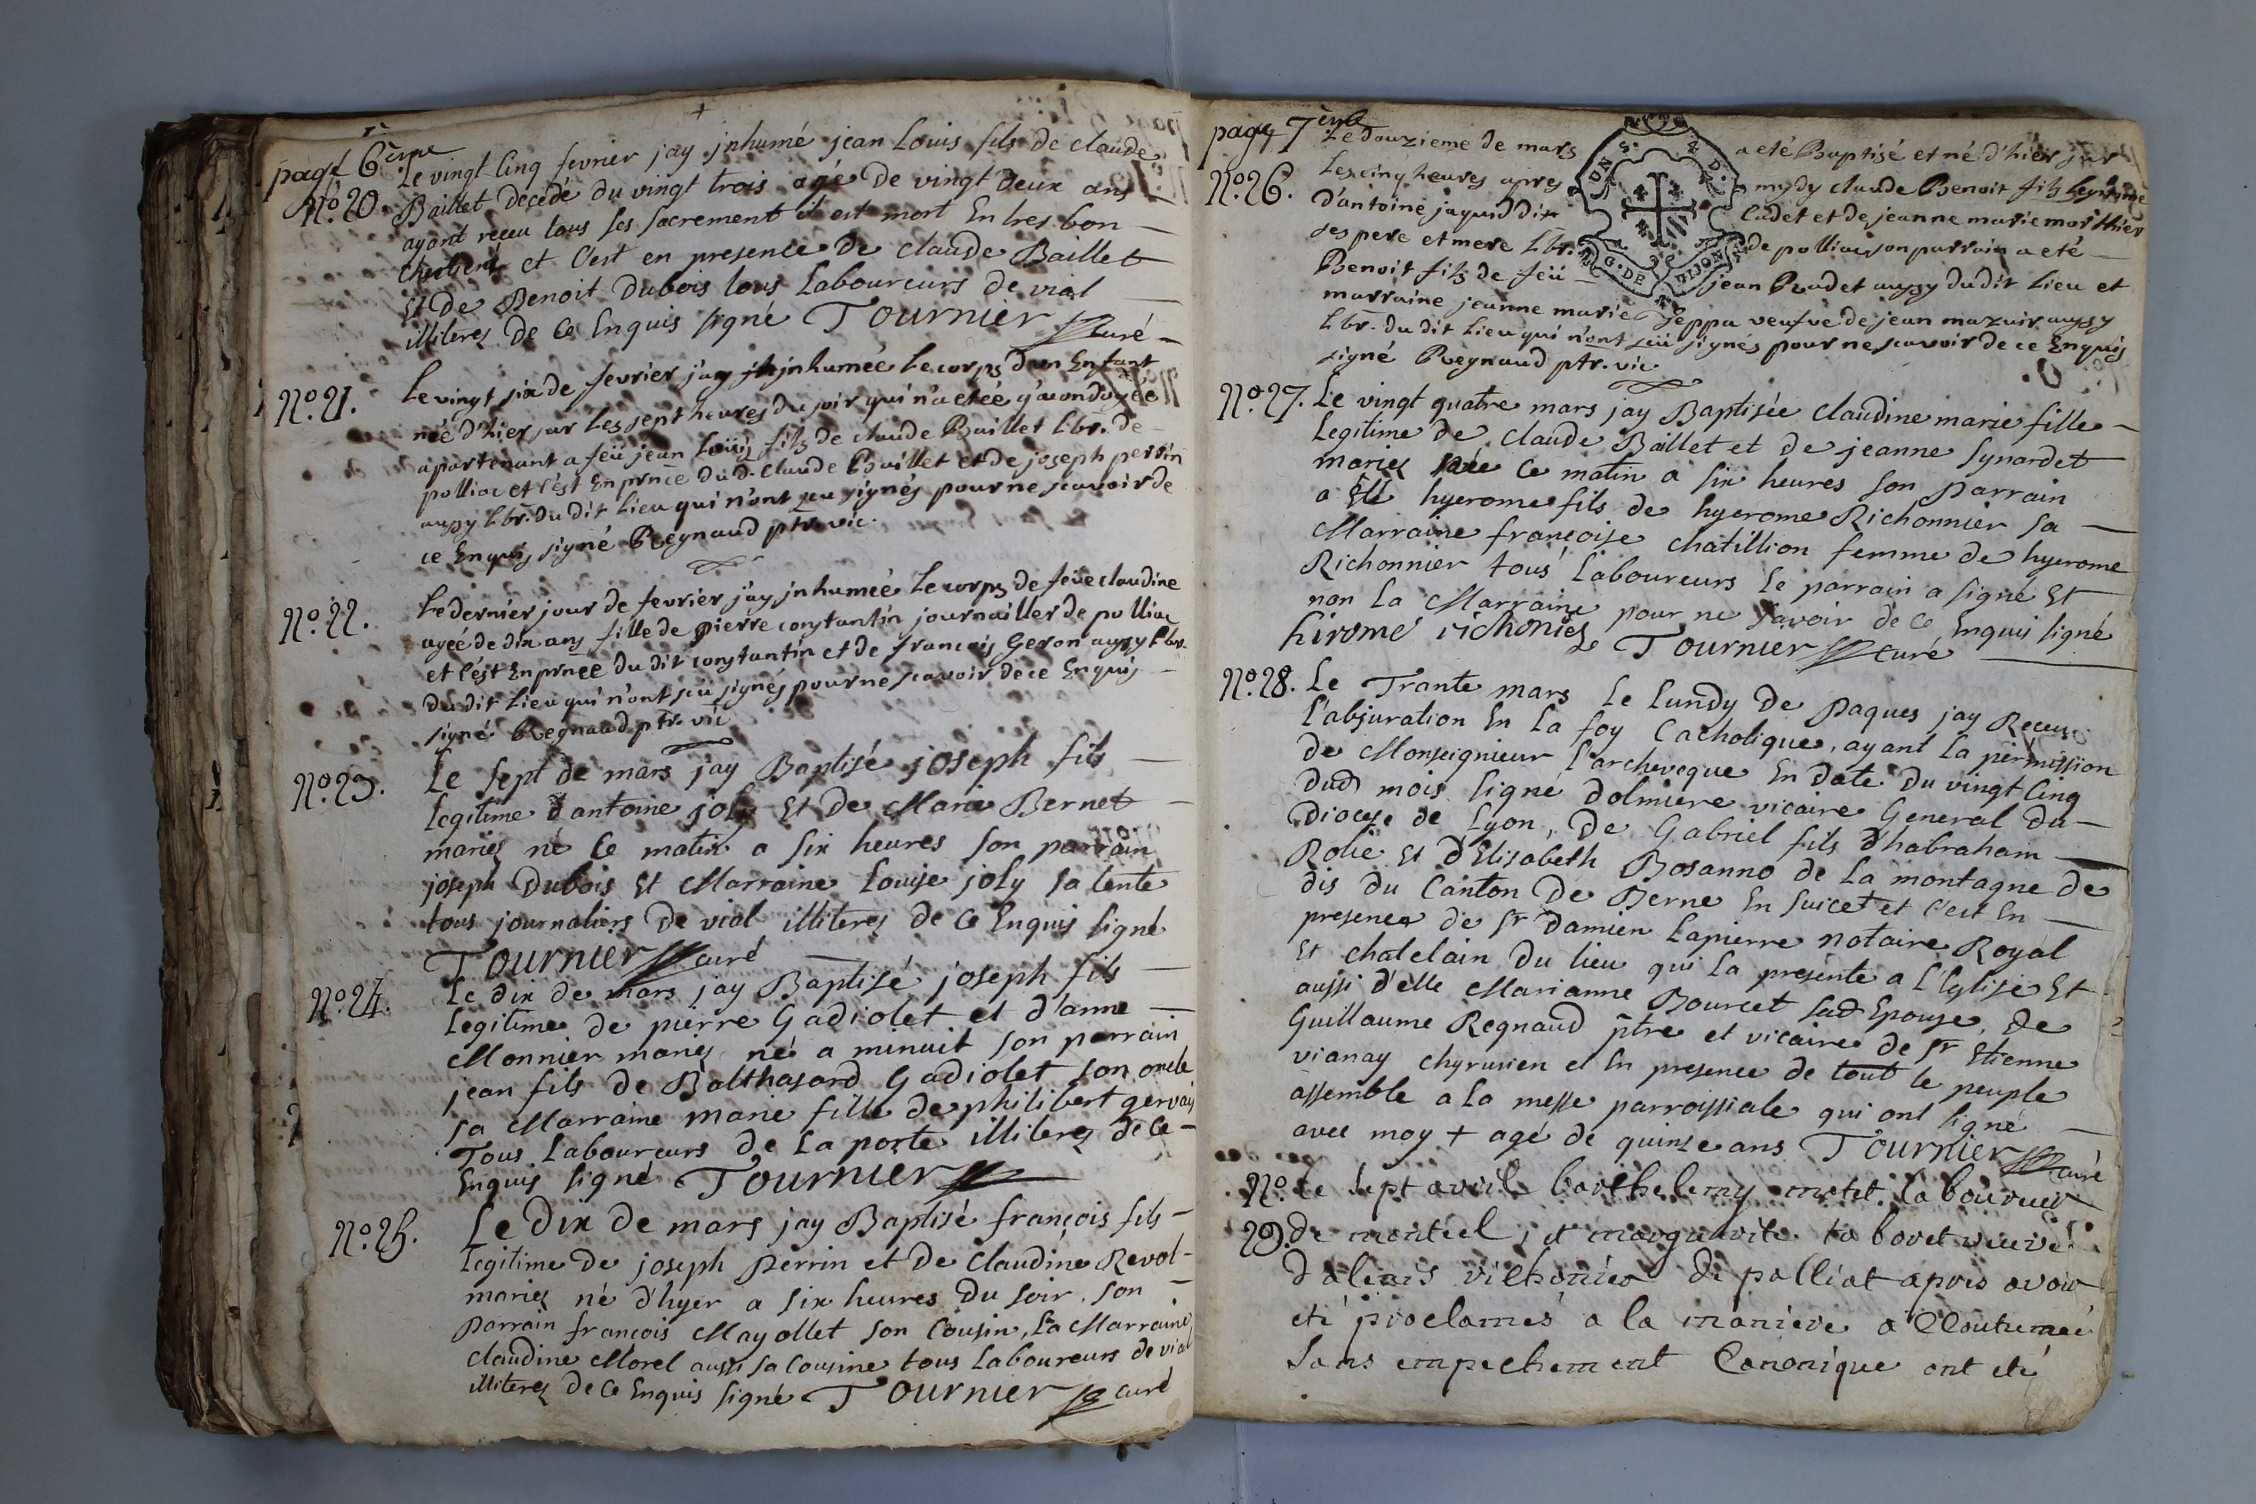 page 6ème
N.o 20. Le vingt cinq fevrier jay jnhumé jean Louis fils de claude
Baillet decedé du vingt trois agé de vingt deux ans
ayant receu tous ses sacrement il est mort En tres bon
chretiens et c'est en presence de claude Baillet
Et de Benoit Dubois tous Laboureurs de vial
illiterez de ce Enquis signé Tournier curé
N.o 21. Le vingt six de fevrier j'ay jnhumée Le corps d'un Enfant
née d'hier sur Les sept heures du soir qui n'a etée q'aondoyée
apartenant a feü jean Loüis fils de claude Baillet Lbr. de
polliac et c'est En prnce du d. claude Baillet et de joseph perrin
aussy Lbr. du dit Lieu qui n'ont sçu signés pour ne scavoir de
ce Enquis signé Regnaud ptr. vic.
N.o 22. Le dernier jour de fevrier j'ay jnhumeé Le corps de feüe claudine
ageé de dix ans fille de pierre constantin journallier de polliac
et c'est En prnce du dit constantin et de francois Geron aussy Lbr.
du dit Lieu qui n'ont scü signés pour ne scavoir de ce Enquis
signé Regnaud ptr. vic
N.o 23. Le sept de mars jay Baptisé joseph fils
legitime d'antoine joly Et de Marie Bernet
mariez né ce matin a six heures son parrain
joseph Dubois Et Marraine Louise joly sa tente
tous journaliers de vial illiterez de ce Enquis signé
Tournier curé
N.o 24. Le dix de mars jay Baptisé joseph fils
Legitime de pierre Gadiolet et d'anne
Monnier mariez né a minuit son parrain
jean fils de Balthasard Gadiolet son oncle
sa Marraine marie fille de philibert gervais
Tous Laboureurs de La porte illiterez de ce
Enquis signé Tournier
N.o 25. Le Dix de mars jay Baptisé françois fils
Legitime de joseph Perrin et de Claudine Revol
mariez né d'hyer a six heures du soir, son
parrain françois Mayollet son Cousin, La Marraine
claudine Morel aussi sa Cousine tous Laboureurs de vial
illiterez de ce Enquis signé Tournier curé
page 7ème
Le douzieme de mars a eté Baptisé et né d'hier sur
N.o 26. Les cinq heures apres mydy claude Benoit fils Legitime
D'antoine jayard dix Cadet et de jeanne marie morthier
ses pere et mere Lbr. de polliac son parrain a eté
Benoit fils de feü jean Radet aussy du dit Lieu et
marraine jeanne marie jeppa veufve de jean mazuir aussy
Lbr. du dit Lieu qui n'ont scü signés pour ne scavoir de ce Enquis
signé Regnaud ptr. vic
ONS. AD. G. DE DIJON
N.o 27. Le vingt quatre mars jay Baptisée claudine marie fille
Legitime de claude Baillet et de jeanne Synardet
mariez née ce matin a six heures son parrain
a Eté hyerome fils de hyerome Richonnier sa
Marraine françoise chatillion femme de hyerome
Richonnier tous Laboureurs le parrain a signé Et
non La Marraine pour ne savoir de ce Enquis signé
hirome richonier Tournier curé
N.o 28. Le Trante mars le Lundy de Paques jay Receu
L'abjuration En La foy Catholique, ayant La permission
de Monseignieur L'archeveque En date du vingt cinq
dud mois signé dolmiere vicaire General du
Diocese de Lyon, De Gabriel fils d'habraham
Rolie Et d'Elisabeth Bosanno de La montagne de
dis du Canton De Berne En suice et c'est En
presence de sr damien Lapierre notaire Royal
Et chatelain Du lieu qui La presenté a L'Eglise Et
aussi d'elle Marianne Bourcet sad Epouse, de
Guillaume Regnaud ptre et vicaire de sr Etienne
vianay chyrurien et En presence de tout le peuple
assemble a la messe parroissiale qui ont signé
avec moy + agé de quinse ans Tournier curé
N.o Le sept avril barthelemy motet laboureur
29. de monteel, et marguerite taboret veuve
d'alexis richonier de polliat apres avoir
eté proclamés a la maniere accoutumeé
sans empechement Canonique ont eté